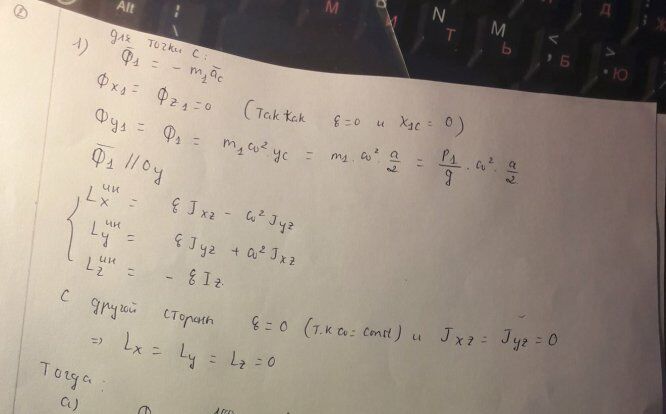 Alt
N
Т
M
Ь
<
, Б
>
. Ю
И
М
Д
②
1) Для точки С:
Φ̄₁ = - m₁ā_c
Φx₁ = Φz₁ = 0 (Так как ε=0 и x₁c = 0)
Φy₁ = Φ₁ = m₁ω²·yc = m₁·ω²·a/2 = P₁/g·ω²·a/2
Φ̄₁ // Oy
L_x^ин = εJxz - ω²Jyz
L_y^ин = εJyz + ω²Jxz
L_z^ин = - εIz.
С другой стороны ε=0 (т.к ω=const) и Jxz = Jyz = 0
⇒ Lx = Ly = Lz = 0
Тогда:
а)